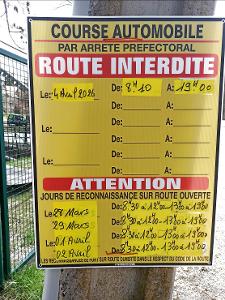 COURSE AUTOMOBILE
PAR ARRETE PREFECTORAL
ROUTE INTERDITE
Le: 4 Avril 2026 De: 8H10 A: 19H00
Le: De: A:
Le: De: A:
Le: De: A:
ATTENTION
JOURS DE RECONNAISSANCE SUR ROUTE OUVERTE
Le: 28 Mars De: 8h30 à 12h00 - 13h00 à 19h00
29 Mars De: 8h30 à 12h00 - 13h00 à 19h00
Le: 01 Avril De: 8h30 à 12h00 - 13h00 à 19h00
02 Avril De: 8h30 à 12h00 - 13h00 à 19h00
LES RECONNAISSANCES SE FONT SUR ROUTE OUVERTE DANS LE RESPECT DU CODE DE LA ROUTE